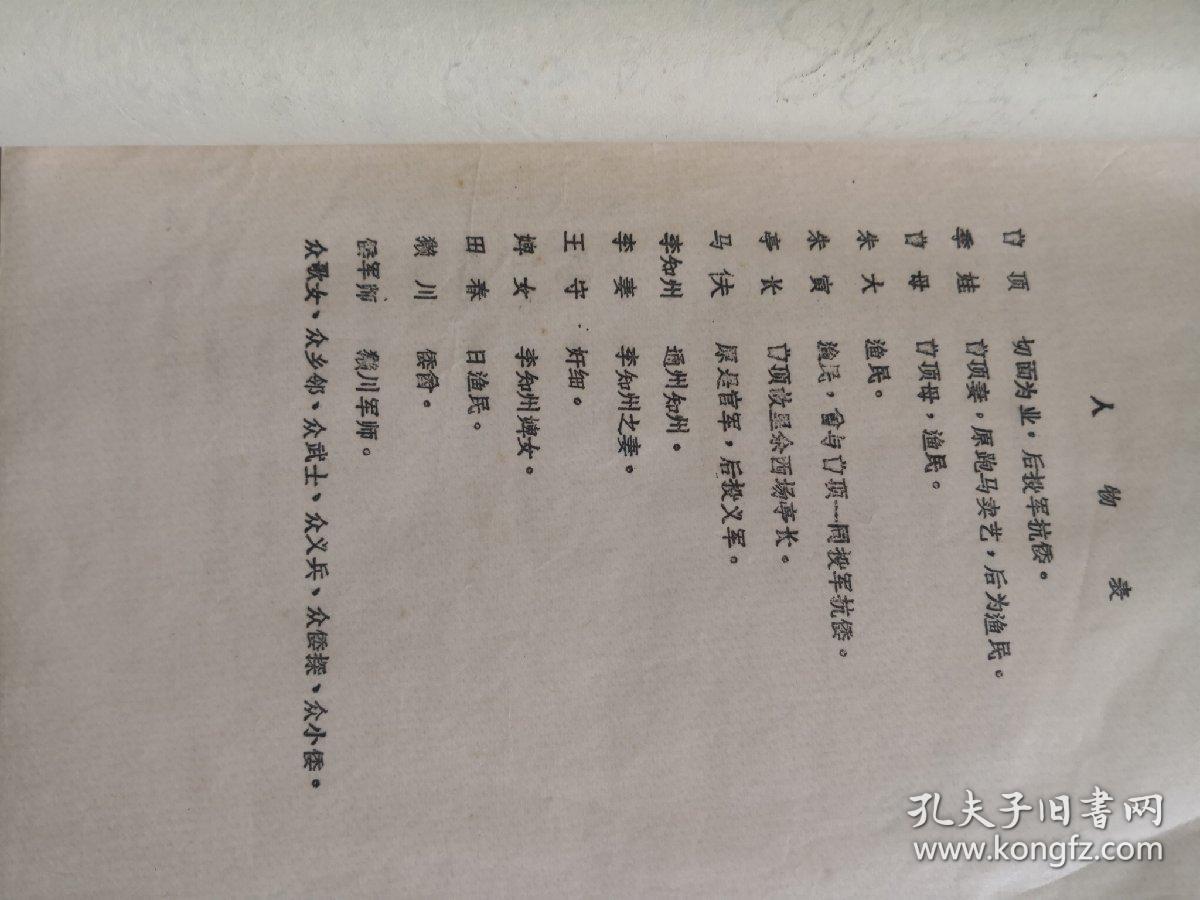 人物表
顶 切面为业,后投军抗倭。
季娃 顶妻,原跑马卖艺,后为渔民。
母 顶母,渔民。
朱大 渔民。
朱寅 渔民,与顶一同投军抗倭。
亭长 顶故里余西场亭长。
马伕 原是官军,后投义军。
李知州 通州知州。
李妻 李知州之妻。
王守 奸细。
婢女 李知州婢女。
田春 日渔民。
濑川 倭酋。
倭军师 濑川军师。
众歌女、众乡邻、众武士、众义兵、众倭探、众小倭。
孔夫子旧书网
www.kongfz.com